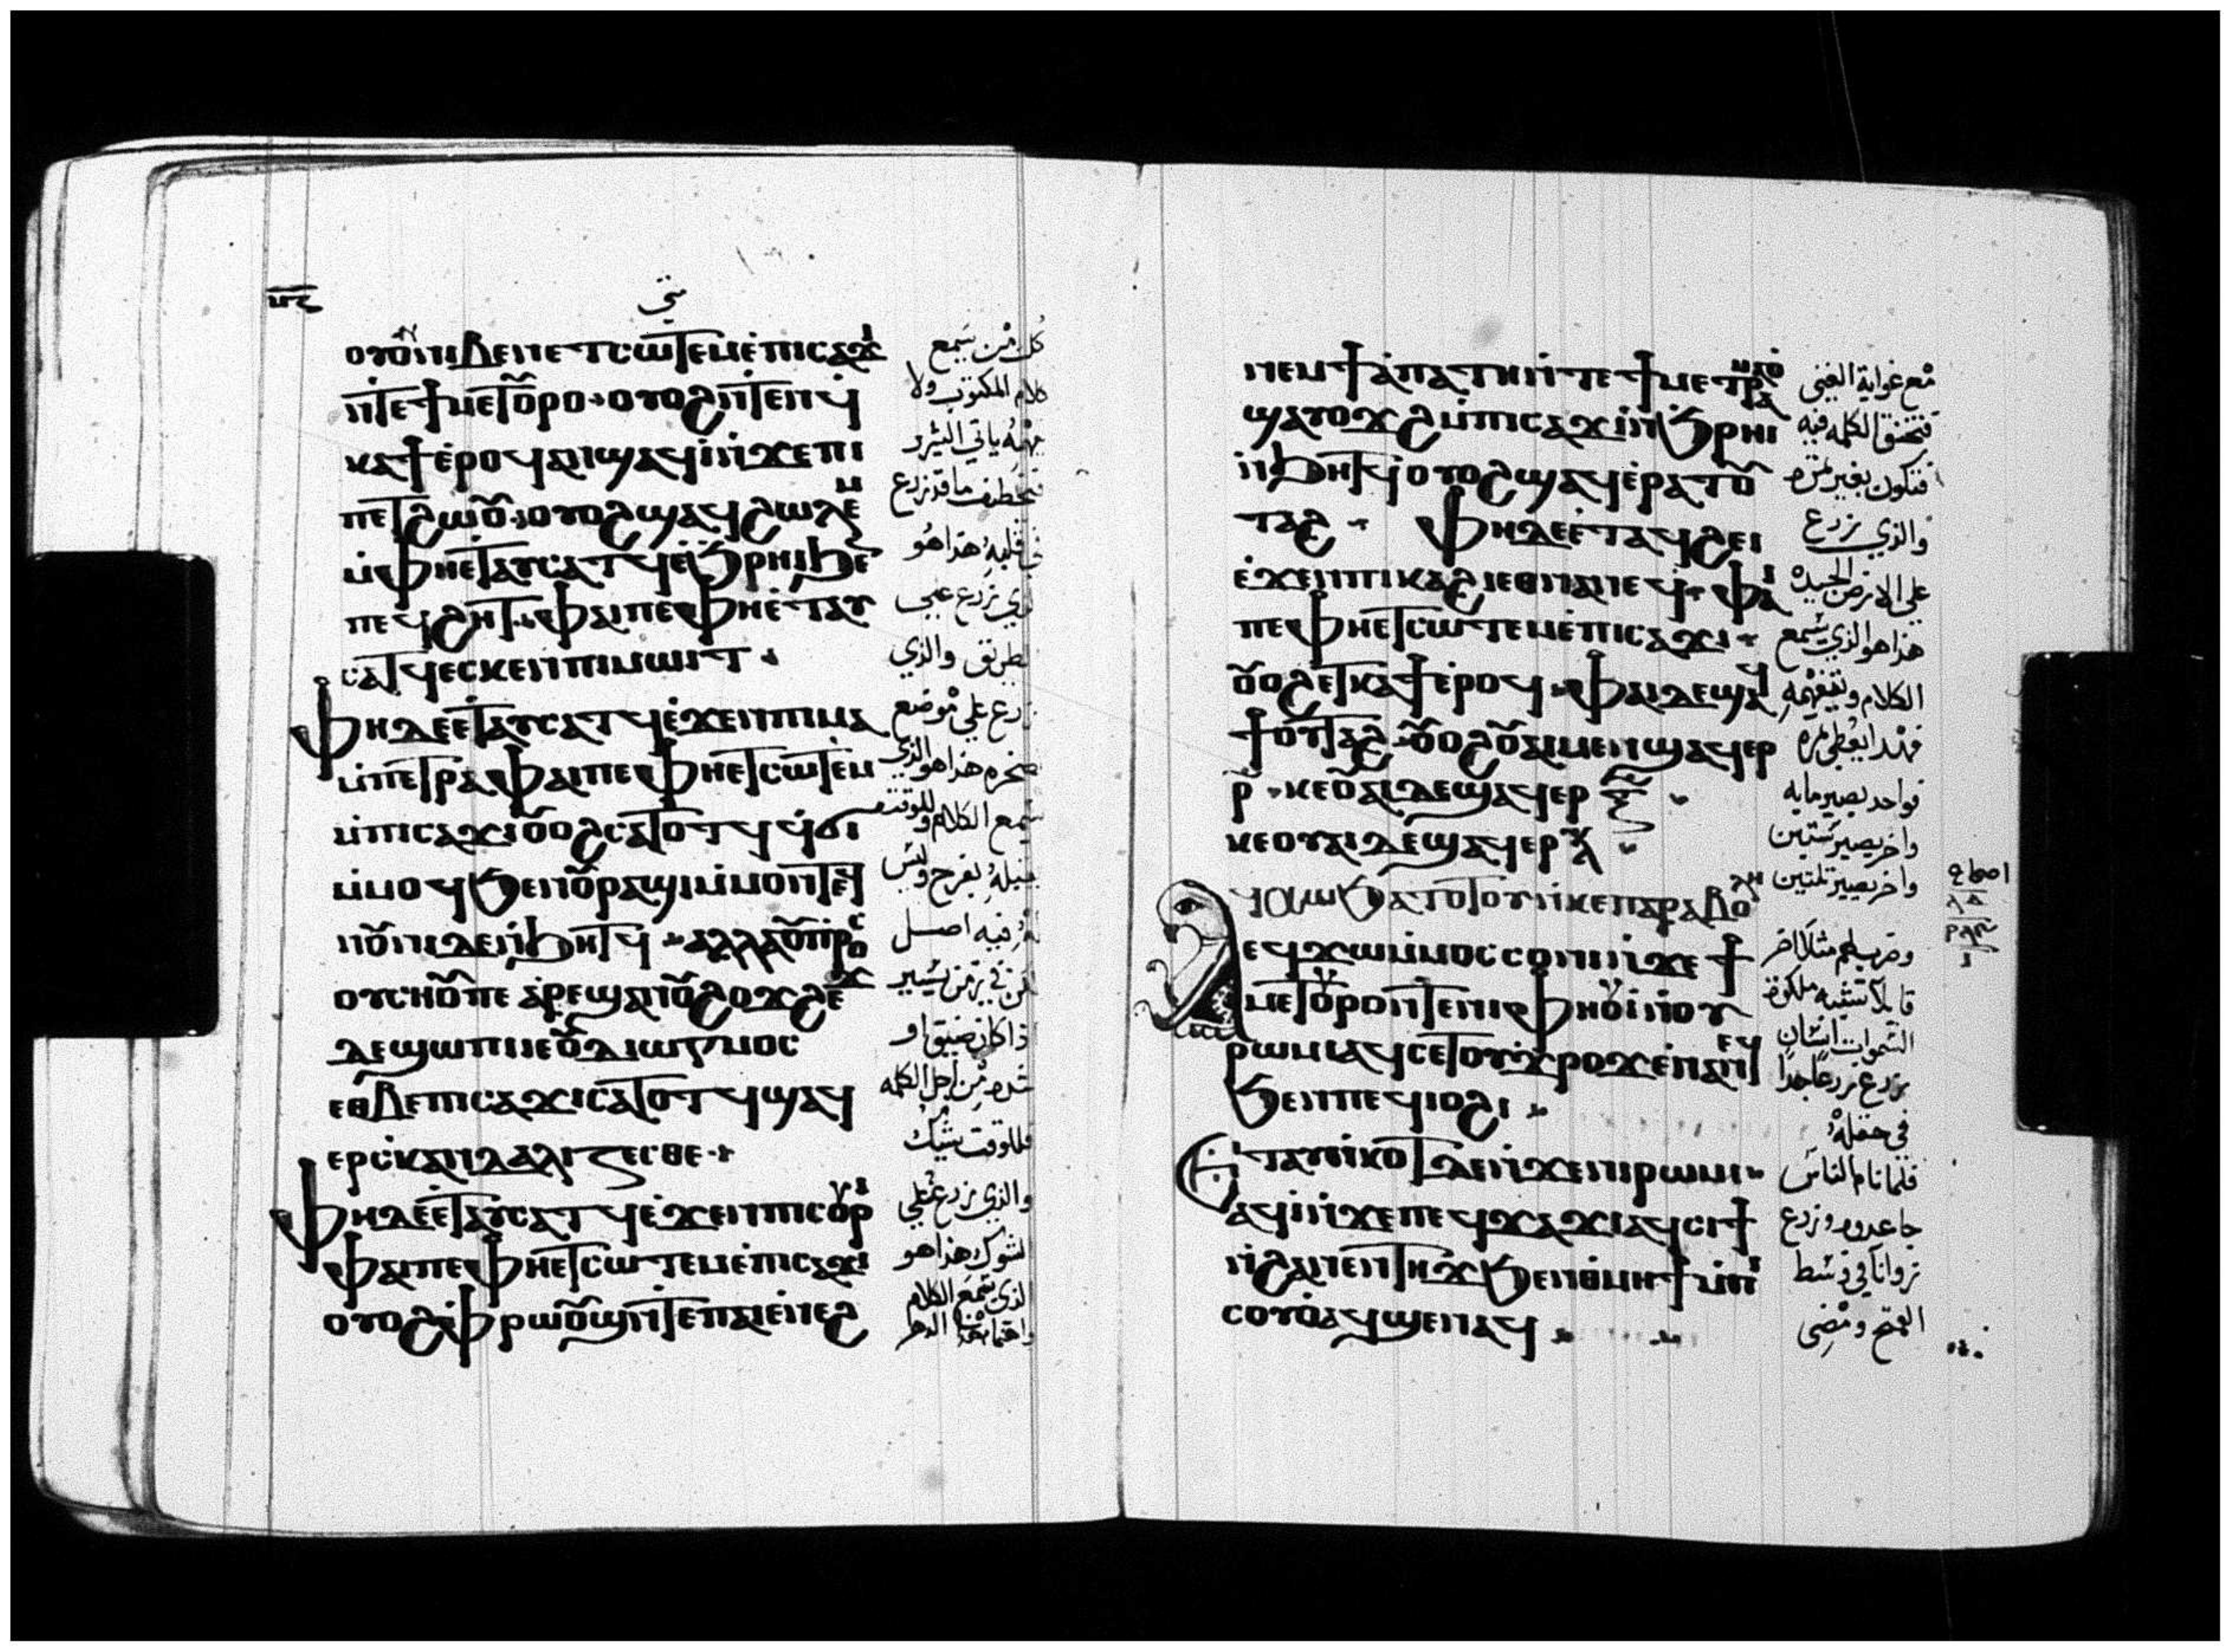 متى
ⲟⲩⲟⲛ ⲛⲓⲃⲉⲛ ⲉⲧⲥⲱⲧⲉⲙ ⲉ̀ⲡⲓⲥⲁϫⲓ
ⲛ̀ⲧⲉϯⲙⲉⲧⲟⲩⲣⲟ ⲟⲩⲟϩ ⲛ̀ⲧⲉϥ
ⲕⲁϯ ⲉ̀ⲣⲟϥ ϣⲁϥⲓ̀ ⲛ̀ϫⲉⲡⲓ
ⲡⲉⲧϩⲱⲟⲩ ⲟⲩⲟϩ ϣⲁϥϩⲱⲗⲉⲙ
ⲙ̀ⲫⲏⲉⲧⲁⲩⲥⲁⲧϥ ⲉ̀ϧⲣⲏⲓ ϧⲉⲛ
ⲡⲉϥϩⲏⲧ ⲫⲁⲓ ⲡⲉ ⲫⲏⲉ̀ⲧⲁⲩ
ⲥⲁⲧϥ ⲉⲥⲕⲉⲛ ⲡⲓⲙⲱⲓⲧ
ⲫⲏ ⲇⲉ ⲉⲧⲁⲩⲥⲁⲧϥ ⲉ̀ϫⲉⲛ ⲡⲓⲙⲁ
ⲙ̀ⲡⲉⲧⲣⲁ ⲫⲁⲓ ⲡⲉ ⲫⲏⲉⲧⲥⲱⲧⲉⲙ
ⲙ̀ⲡⲓⲥⲁϫⲓ ⲟⲩⲟϩ ⲥⲁⲧⲟⲧϥ ϥ̀ϭⲓ
ⲙ̀ⲙⲟϥ ϧⲉⲛ ⲟⲩⲣⲁϣⲓ ⲙ̀ⲙⲟⲛⲧⲉϥ
ⲛⲟⲩⲛⲓ ⲇⲉ ⲛ̀ϧⲏⲧϥ ⲁⲗⲗⲁ ⲟⲩⲡⲣⲟⲥ
ⲟⲩⲥⲏⲟⲩ ⲡⲉ ⲁⲣⲉϣⲁⲛ ⲟⲩϩⲟϫϩⲉϫ
ⲇⲉ ϣⲱⲡⲓ ⲓⲉ ⲟⲩⲇⲓⲱⲅⲙⲟⲥ
ⲉⲑⲃⲉ ⲡⲓⲥⲁϫⲓ ⲥⲁⲧⲟⲧϥ ϣⲁϥ
ⲉⲣⲥⲕⲁⲛⲇⲁⲗⲓⲍⲉⲥⲑⲉ
ⲫⲏ ⲇⲉ ⲉ̀ⲧⲁⲩⲥⲁⲧϥ ⲉ̀ϫⲉⲛ ⲡⲓⲥⲟⲩⲣⲓ
ⲫⲁⲓ ⲡⲉ ⲫⲏⲉⲧⲥⲱⲧⲉⲙ ⲉ̀ⲡⲓⲥⲁϫⲓ
ⲟⲩⲟϩ ⲫⲣⲱⲟⲩϣ ⲛ̀ⲧⲉ ⲡⲁⲓⲉ̀ⲛⲉϩ
كل من يسمع
كلام الملكوت ولا
يفهمه ياتي الشرير
فيخطف ما قد زرع
في قلبه هذا هو
الذي زرع علي
الطريق والذي
زرع علي موضع
صخره هذا هو الذي
يسمع الكلام وللوقت
يقبله بفرح وليس
له فيه اصل
لكن في زمن يسير
اذا كان ضيق او
شده من اجل الكلمه
فللوقت يشك
والذي زرع علي
الشوك هذا هو
الذي يسمع الكلام
ⲛⲉⲙ ϯⲁ̀ⲡⲁⲧⲏ ⲛ̀ⲧⲉ ϯⲙⲉⲧⲣⲁⲙⲁⲟ̀
ϣⲁⲩⲟϫϩ ⲙ̀ⲡⲓⲥⲁϫⲓ ⲛ̀ϧⲣⲏⲓ
ⲛ̀ϧⲏⲧϥ ⲟⲩⲟϩ ϣⲁϥⲉⲣⲁⲧⲟⲩ
ⲧⲁϩ ⲫⲏ ⲇⲉ ⲉ̀ⲧⲁϥϩⲉⲓ
ⲉ̀ϫⲉⲛ ⲡⲓⲕⲁϩⲓ ⲉⲑⲛⲁⲛⲉϥ ⲫⲁⲓ
ⲡⲉ ⲫⲏⲉⲧⲥⲱⲧⲉⲙ ⲉ̀ⲡⲓⲥⲁϫⲓ
ⲟⲩⲟϩ ⲉⲧⲕⲁϯ ⲉ̀ⲣⲟϥ ⲫⲁⲓ ⲇⲉ ϣⲁϥ
ϯⲟⲩⲧⲁϩ ⲟⲩⲟϩ ⲟⲩⲁⲓ ⲙⲉⲛ ϣⲁϥⲉⲣ
ⲣ̅ ⲕⲉⲟⲩⲁⲓ ⲇⲉ ϣⲁϥⲉⲣ ⲝ̅
ⲕⲉⲟⲩⲁⲓ ⲇⲉ ϣⲁϥⲉⲣ ⲗ̅
ⲁϥⲭⲱ ϧⲁⲧⲟⲧⲟⲩ ⲛ̀ⲕⲉⲡⲁⲣⲁⲃⲟⲗⲏ
ⲉϥϫⲱ ⲙ̀ⲙⲟⲥ ⲥⲟ̀ⲛⲓ ⲛ̀ϫⲉ ϯ
ⲙⲉⲧⲟⲩⲣⲟ ⲛ̀ⲧⲉ ⲛⲓⲫⲏⲟⲩⲓ̀ ⲛ̀ⲟⲩ
ⲣⲱⲙⲓ ⲁϥⲥⲉⲧ ⲟⲩϫⲣⲟϫ ⲉ̀ⲛⲁⲛⲉϥ
ϧⲉⲛ ⲡⲉϥⲓⲟϩⲓ
ⲉⲧⲁⲩⲉⲛⲕⲟⲧ ⲇⲉ ⲛ̀ϫⲉ ⲛⲓⲣⲱⲙⲓ
ⲁϥⲓ̀ ⲛ̀ϫⲉ ⲡⲉϥϫⲁϫⲓ ⲁϥⲥⲓϯ
ⲛ̀ϩⲁⲛⲉⲛⲧⲏϫ ϧⲉⲛ ⲑⲙⲏϯ ⲙ̀ⲡⲓ
ⲥⲟⲩⲟ̀ ⲁϥϣⲉⲛⲁϥ
مع غواية الغني
فتخنق الكلمه فيه
فتكون بغير ثمره
والذي زرع
علي الارض الجيده
هذا هو الذي يسمع
الكلام ويتفهمه
فهذا يعطي ثمره
فواحد يصير مايه
واخر يصير ستين
واخر يصير تلتين
وضرب لهم مثلا اخر
قايلا تشبه ملكوت
السموات انسان
زرع زرعا جيدا
في حقله
فلما نام الناس
جا عدوه وزرع
زوانا في وسط
القمح ومضي
اصحاح